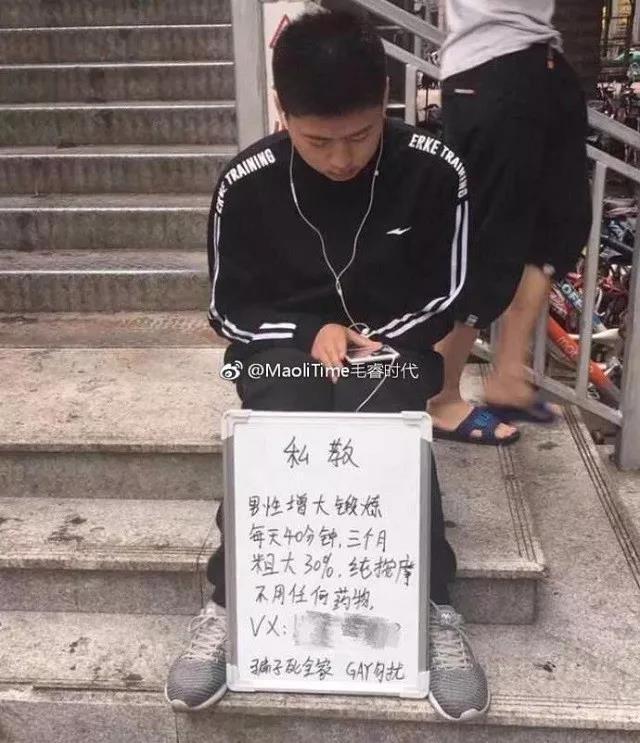 ERKE TRAINING
ERKE TRAINING
@MaoliTime毛睿时代
私教
男性增大锻炼
每天40分钟,三个月
粗大30%,纯按摩
不用任何药物.
VX:
骗子死全家 GAY勿扰